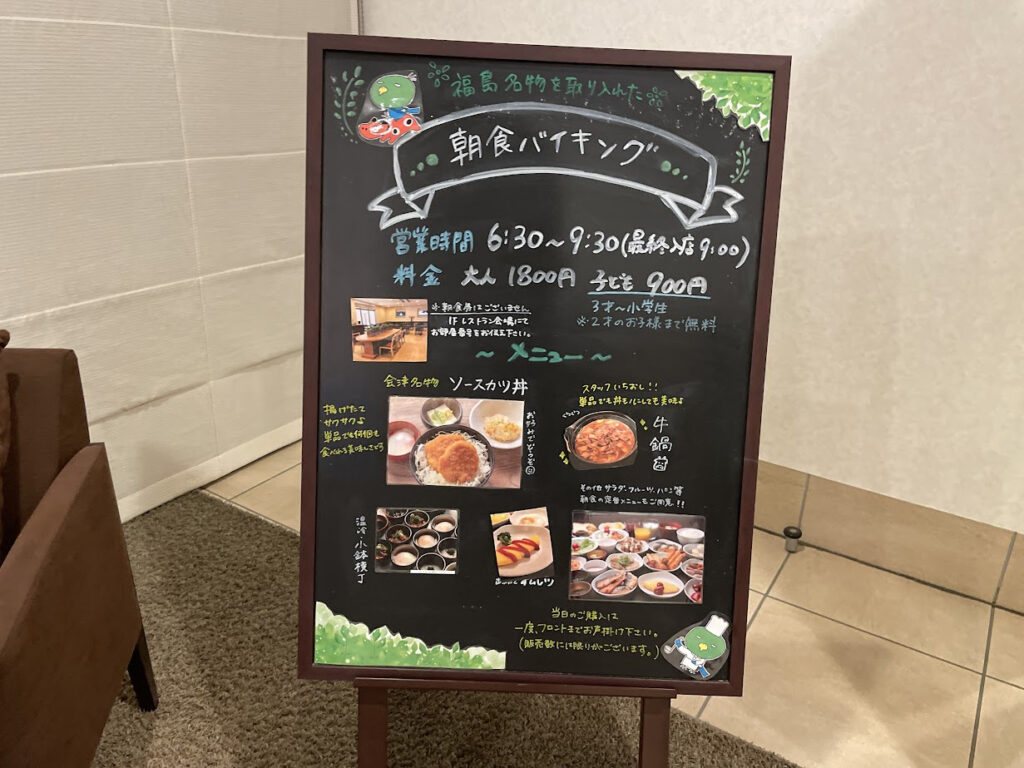 福島名物を取り入れた
朝食バイキング
営業時間 6:30～9:30(最終入店 9:00)
料金 大人 1800円 子ども 900円
3才～小学生
※2才のお子様まで無料
※朝食券はございません
1F レストラン会場にて
お部屋番号をお伝え下さい。
～メニュー～
会津名物 ソースカツ丼
揚げたて
サクサク♪
単品でも何個も
食べれる美味しさどす
お好みでどうぞ
スタッフいちおし!!
単品でも丼もにしても美味♪
ぐつぐつ
牛鍋
その他 サラダ・フルーツ・パン等
朝食の定番メニューもご用意!!
温冷・小鉢横丁
オムレツ
当日のご購入は
一度、フロントまでお声掛け下さい。
(販売数には限りがございます。)